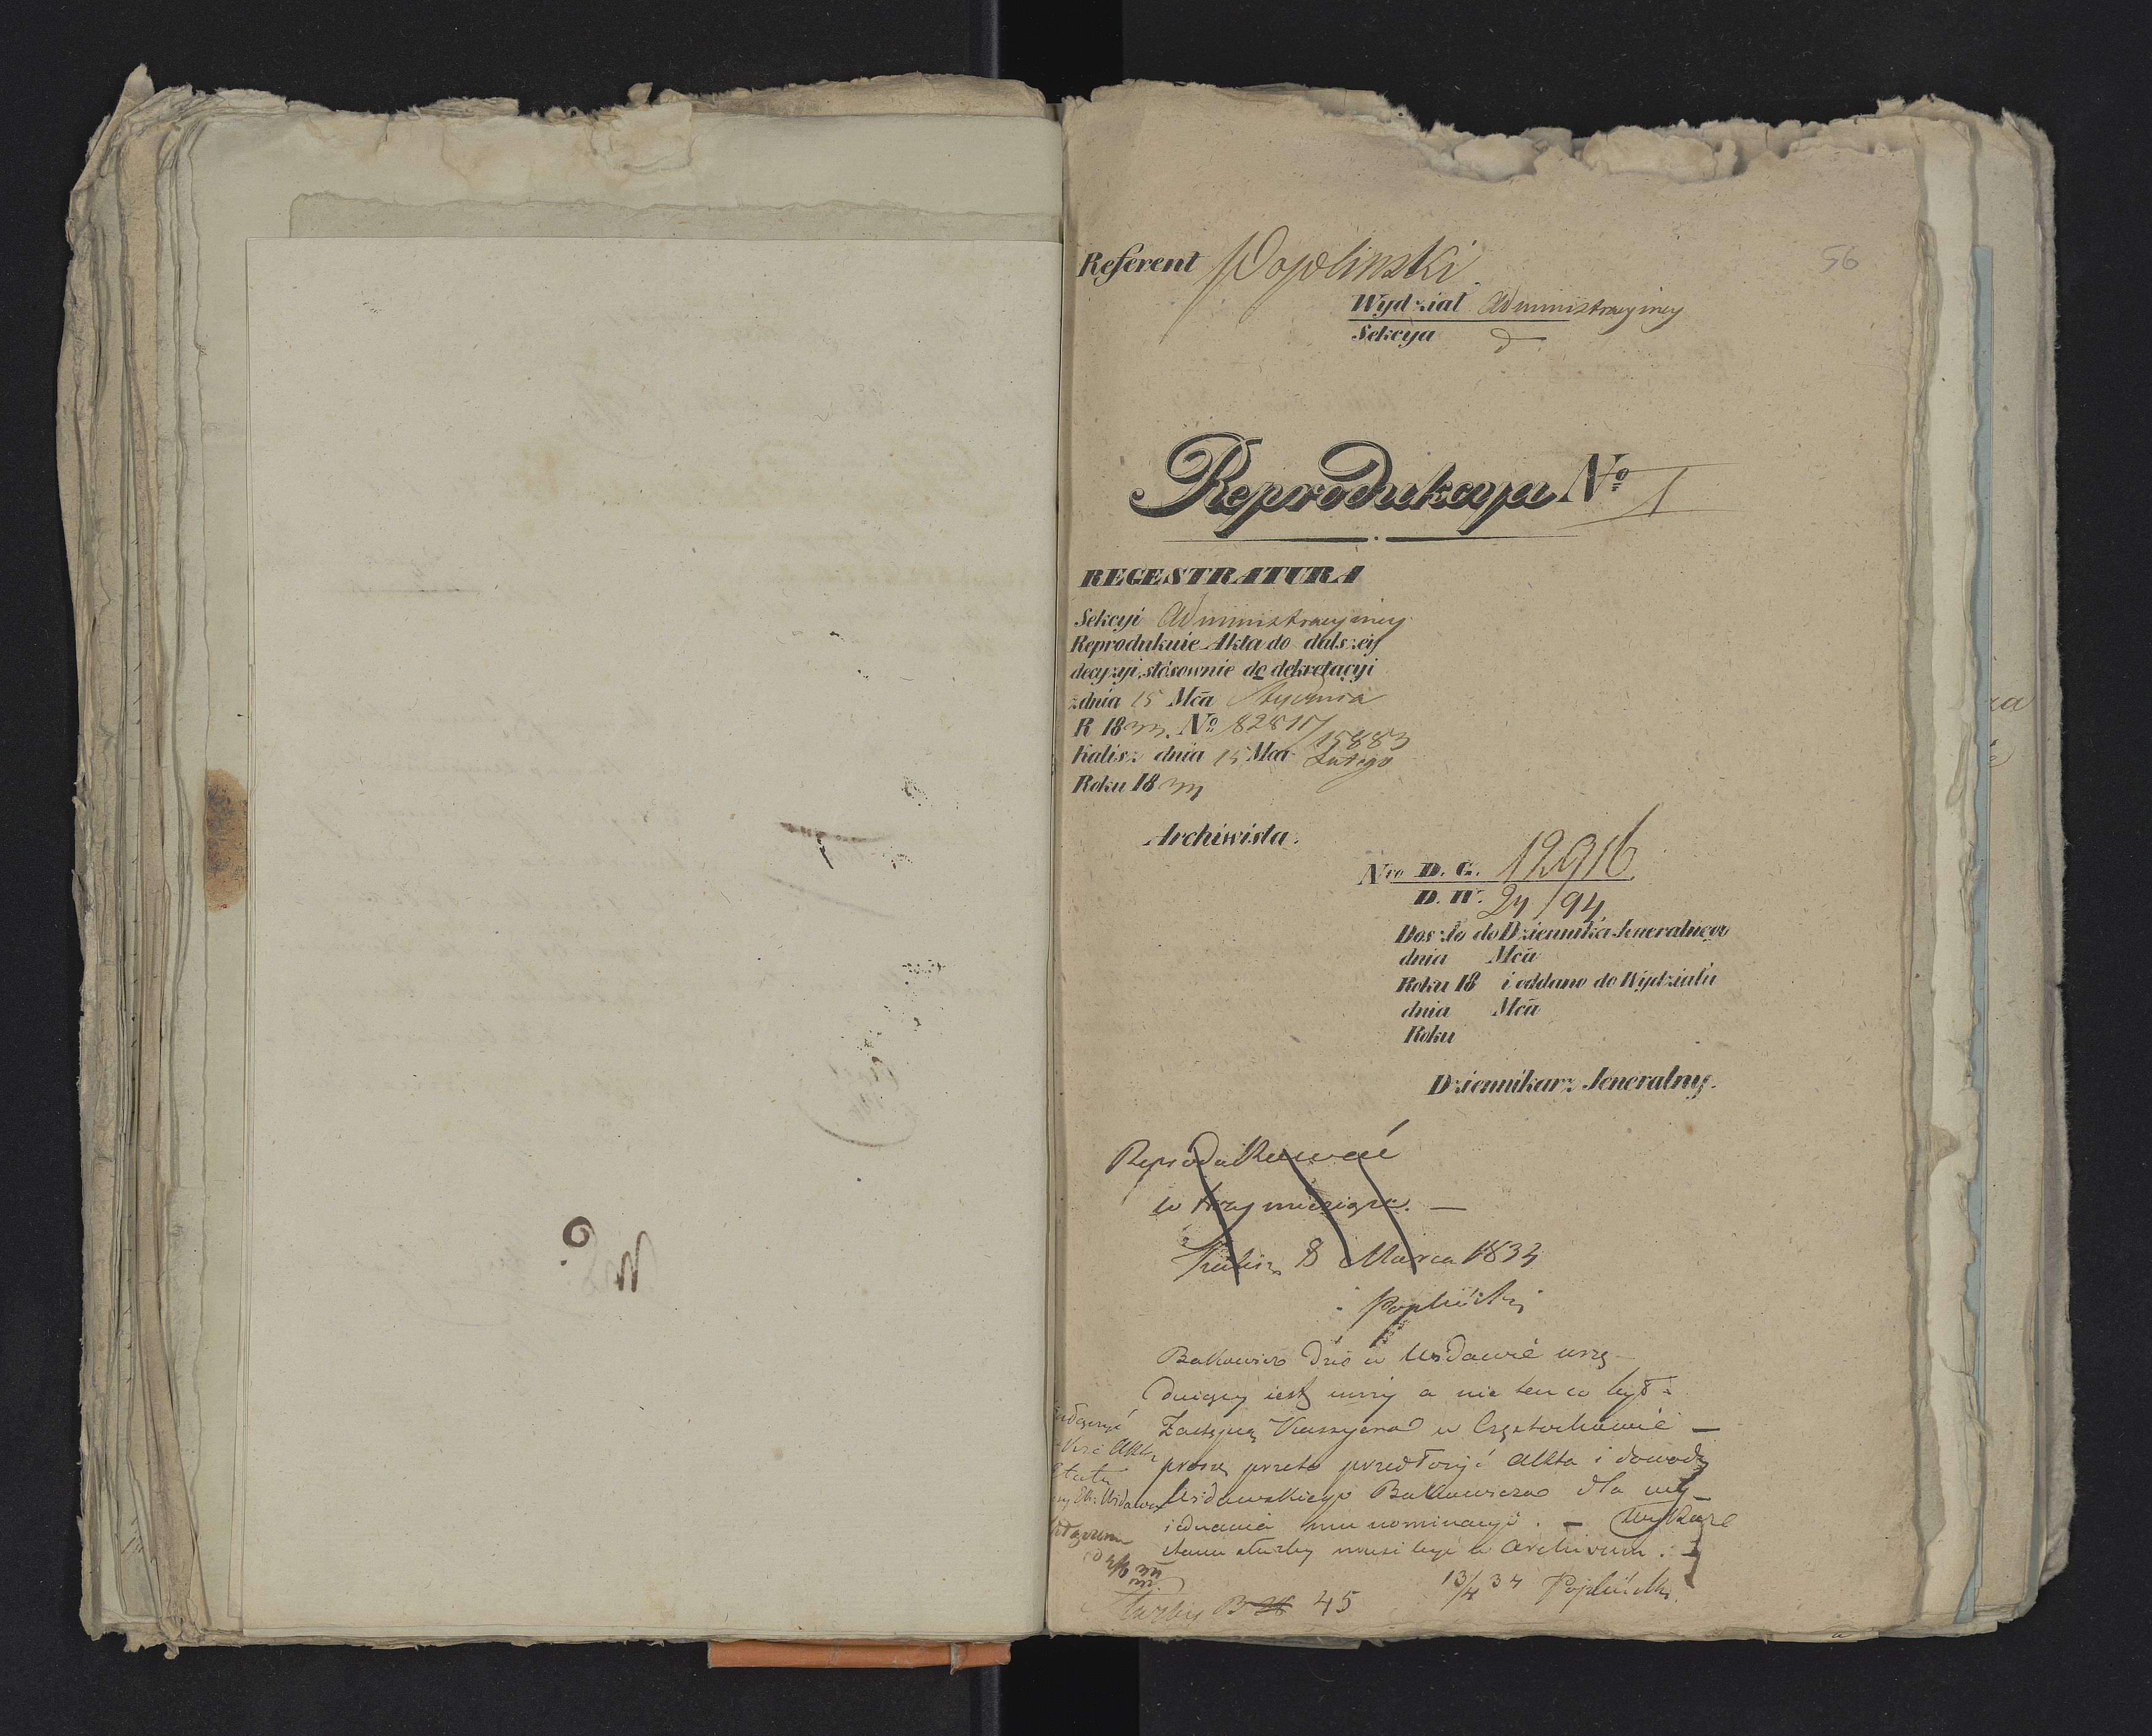 56
Referent Popolinski
Wydział Administracyiney
Sekcya
Reprodukcya Nº 1
REGESTRATURA
Sekcyi Administracyiney
Reprodukuie Akta do dalszey
decyzyi, stósownie do dekretacyi
z dnia 15 Mca Stycznia
R 1833. Nº 82817/15883
Kalisz dnia 15 Mca Lutego
Roku 1833
Archiwista.
Nro D. G. 12916
D. W. 24/94
Doszło do Dziennika Jeneralnego
dnia Mca
Roku 18 i oddano do Wydziału
dnia Mca
Roku
Dziennikarz Jeneralny.
Reprodukować
w trzy miesiące. —
Kalisz 8 Marca 1834
Popliński
Bakowicz dziś w Widawie urzę-
duiący iest inny a nie ten co był
Zastępcą Kassyera w Częstochowie —
proszę przeto przedłożyć Akta i dowody
Widawskiego Bakowicza dla wy-
iednania mu nominacyi. — Wykaz
stanu służby musi być w Archiwum.
13/4 34 Popliński
Akta
Służby B 45
Nº